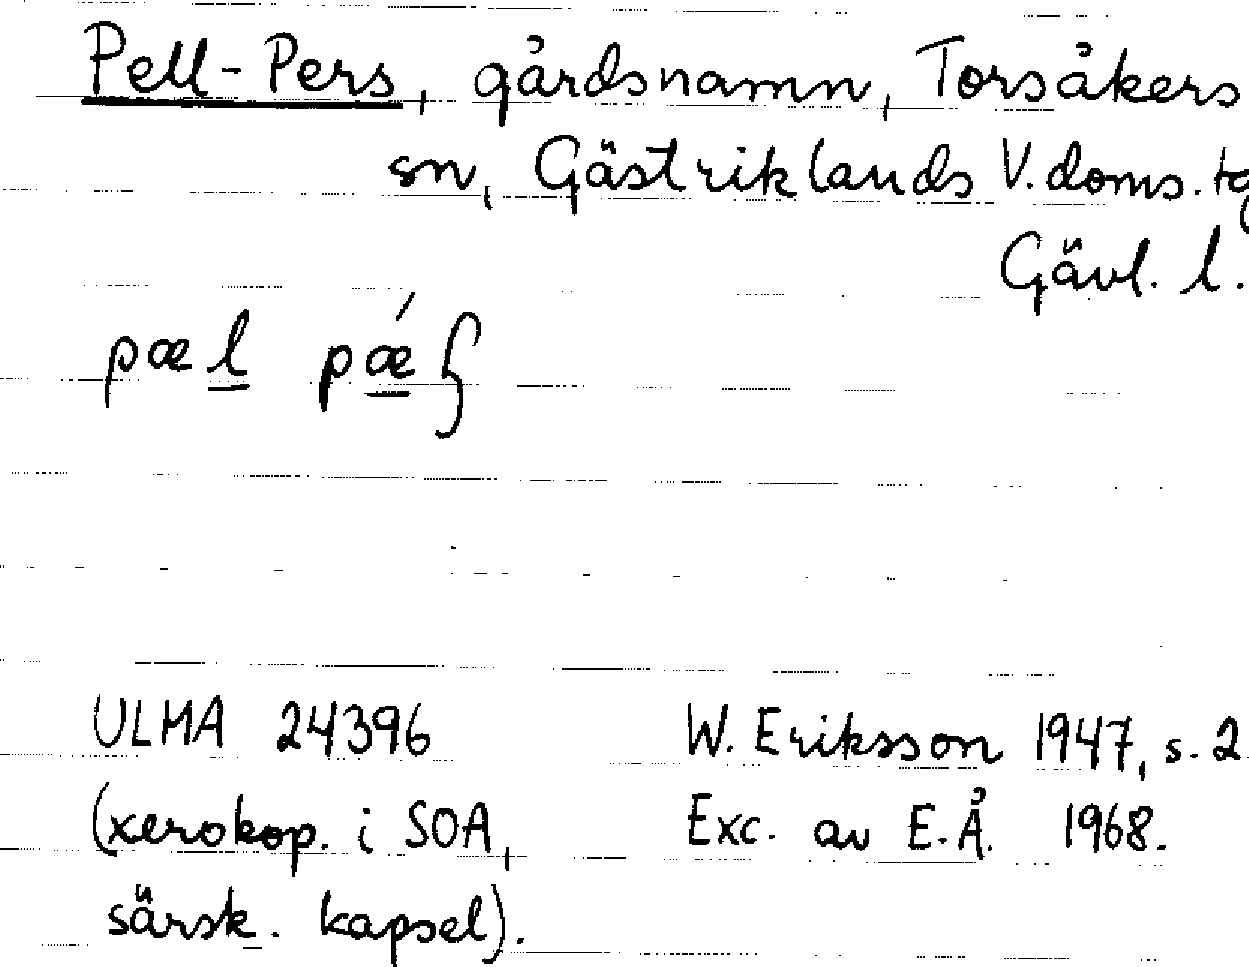 Pell-Pers, gårdsnamn, Torsåkers
sn, Gästriklands V. doms. tg
Gävl. l.
pæl pǽ
ULMA 24396 W. Eriksson 1947, s. 2
(xerokop. i SOA, Exc. av E.Å. 1968.
särsk. kapsel).